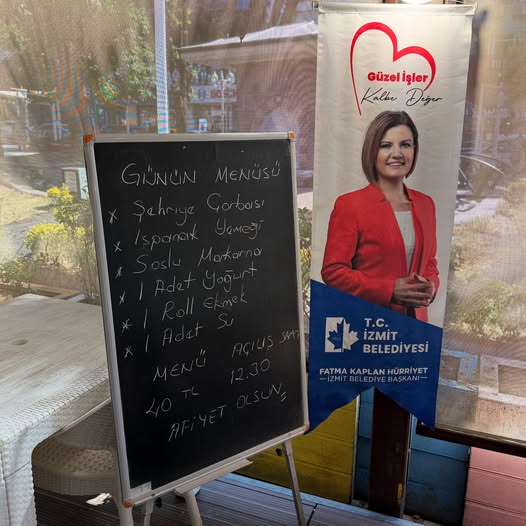 GÜNÜN MENÜSÜ
* Şehriye Çorbası
* Ispanak Yemeği
* Soslu Makarna
* 1 Adet Yoğurt
* 1 Roll Ekmek
* 1 Adet Su
MENÜ AÇILIŞ SAATİ
40 TL 12.30
AFİYET OLSUN
Güzel İşler
Kalbe Değer
T.C.
İZMİT
BELEDİYESİ
FATMA KAPLAN HÜRRİYET
İZMİT BELEDİYE BAŞKANI